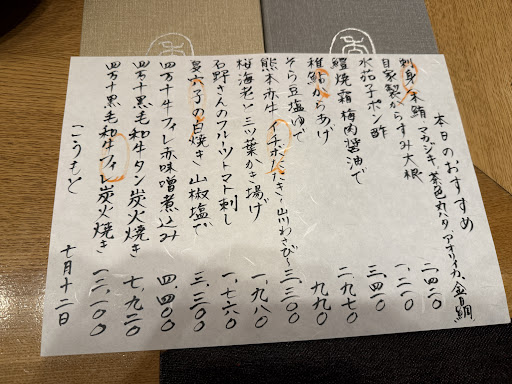 本日のおすすめ
刺身 本鮪、マカジキ、茶色丸ハタ、アオリイカ、金目鯛
自家製からすみ大根 二、四二〇
水茄子ポン酢 一、二一〇
鱧焼霜梅肉醤油で 三、四一〇
稚鮎からあげ 二、九七〇
そら豆塩ゆで 九九〇
熊本赤牛イチボたたき〜山川わさび〜 三、三〇〇
桜海老と三ツ葉かき揚げ 一、九八〇
石野さんのフルーツトマト刺し 一、七六〇
穴子の白焼き 山椒塩で 三、三〇〇
四万十牛フィレ赤味噌煮込み 四、四〇〇
四万十黒毛和牛タン炭火焼き 七、九二〇
四万十黒毛和牛フィレ炭火焼き 一二、一〇〇
こうもと 七月十二日